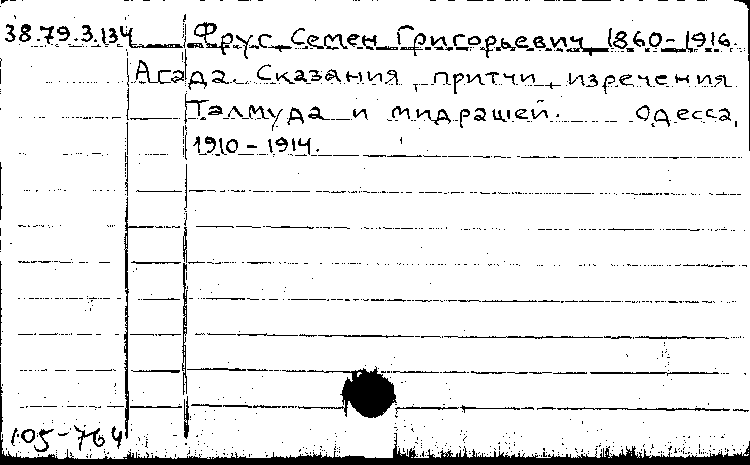 38.79.3.134 Фрус, Семен Григорьевич, 1860-1916.
Агада. Сказания, притчи, изречения
Талмуда и мидрашей. Одесса,
1910-1914.
105-764